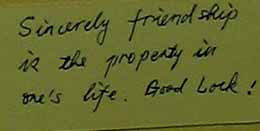 Sincerely friendship
is the property in
one's life. Good Lock!